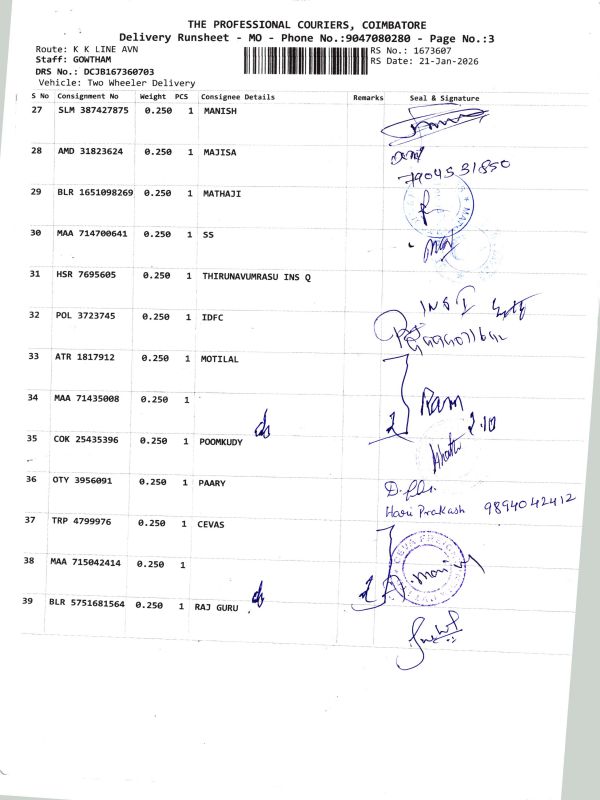 THE PROFESSIONAL COURIERS, COIMBATORE
Delivery Runsheet - MO - Phone No.:9047080280 - Page No.:3
Route: K K LINE AVN
RS No.: 1673607
Staff: GOWTHAM
RS Date: 21-Jan-2026
DRS No.: DCJB167360703
Vehicle: Two Wheeler Delivery
S No Consignment No Weight PCS Consignee Details Remarks Seal & Signature
27 SLM 387427875 0.250 1 MANISH
28 AMD 31823624 0.250 1 MAJISA
7904531850
29 BLR 1651098269 0.250 1 MATHAJI
30 MAA 714700641 0.250 1 SS
31 HSR 7695605 0.250 1 THIRUNAVUMRASU INS Q
32 POL 3723745 0.250 1 IDFC
33 ATR 1817912 0.250 1 MOTILAL
34 MAA 71435008 0.250 1
2 Ram
2.10
35 COK 25435396 0.250 1 POOMKUDY
36 OTY 3956091 0.250 1 PAARY
Hari Prakash 9894042412
37 TRP 4799976 0.250 1 CEVAS
38 MAA 715042414 0.250 1
2 Mani
39 BLR 5751681564 0.250 1 RAJ GURU